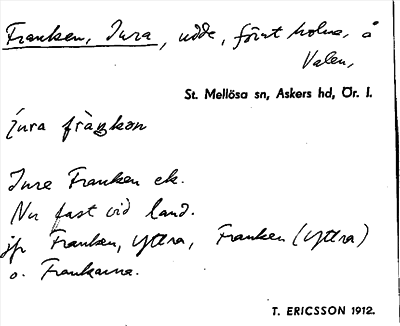 Franken, Jura, udde, förut holme, å
Valen,
St. Mellösa sn, Askers hd, Ör. l.
jura fràŋkən
Jura Franken ek.
Nu fast vid land.
jfr Franken, Yttra, Franken (Yttra)
o. Frankarna.
T. ERICSSON 1912.